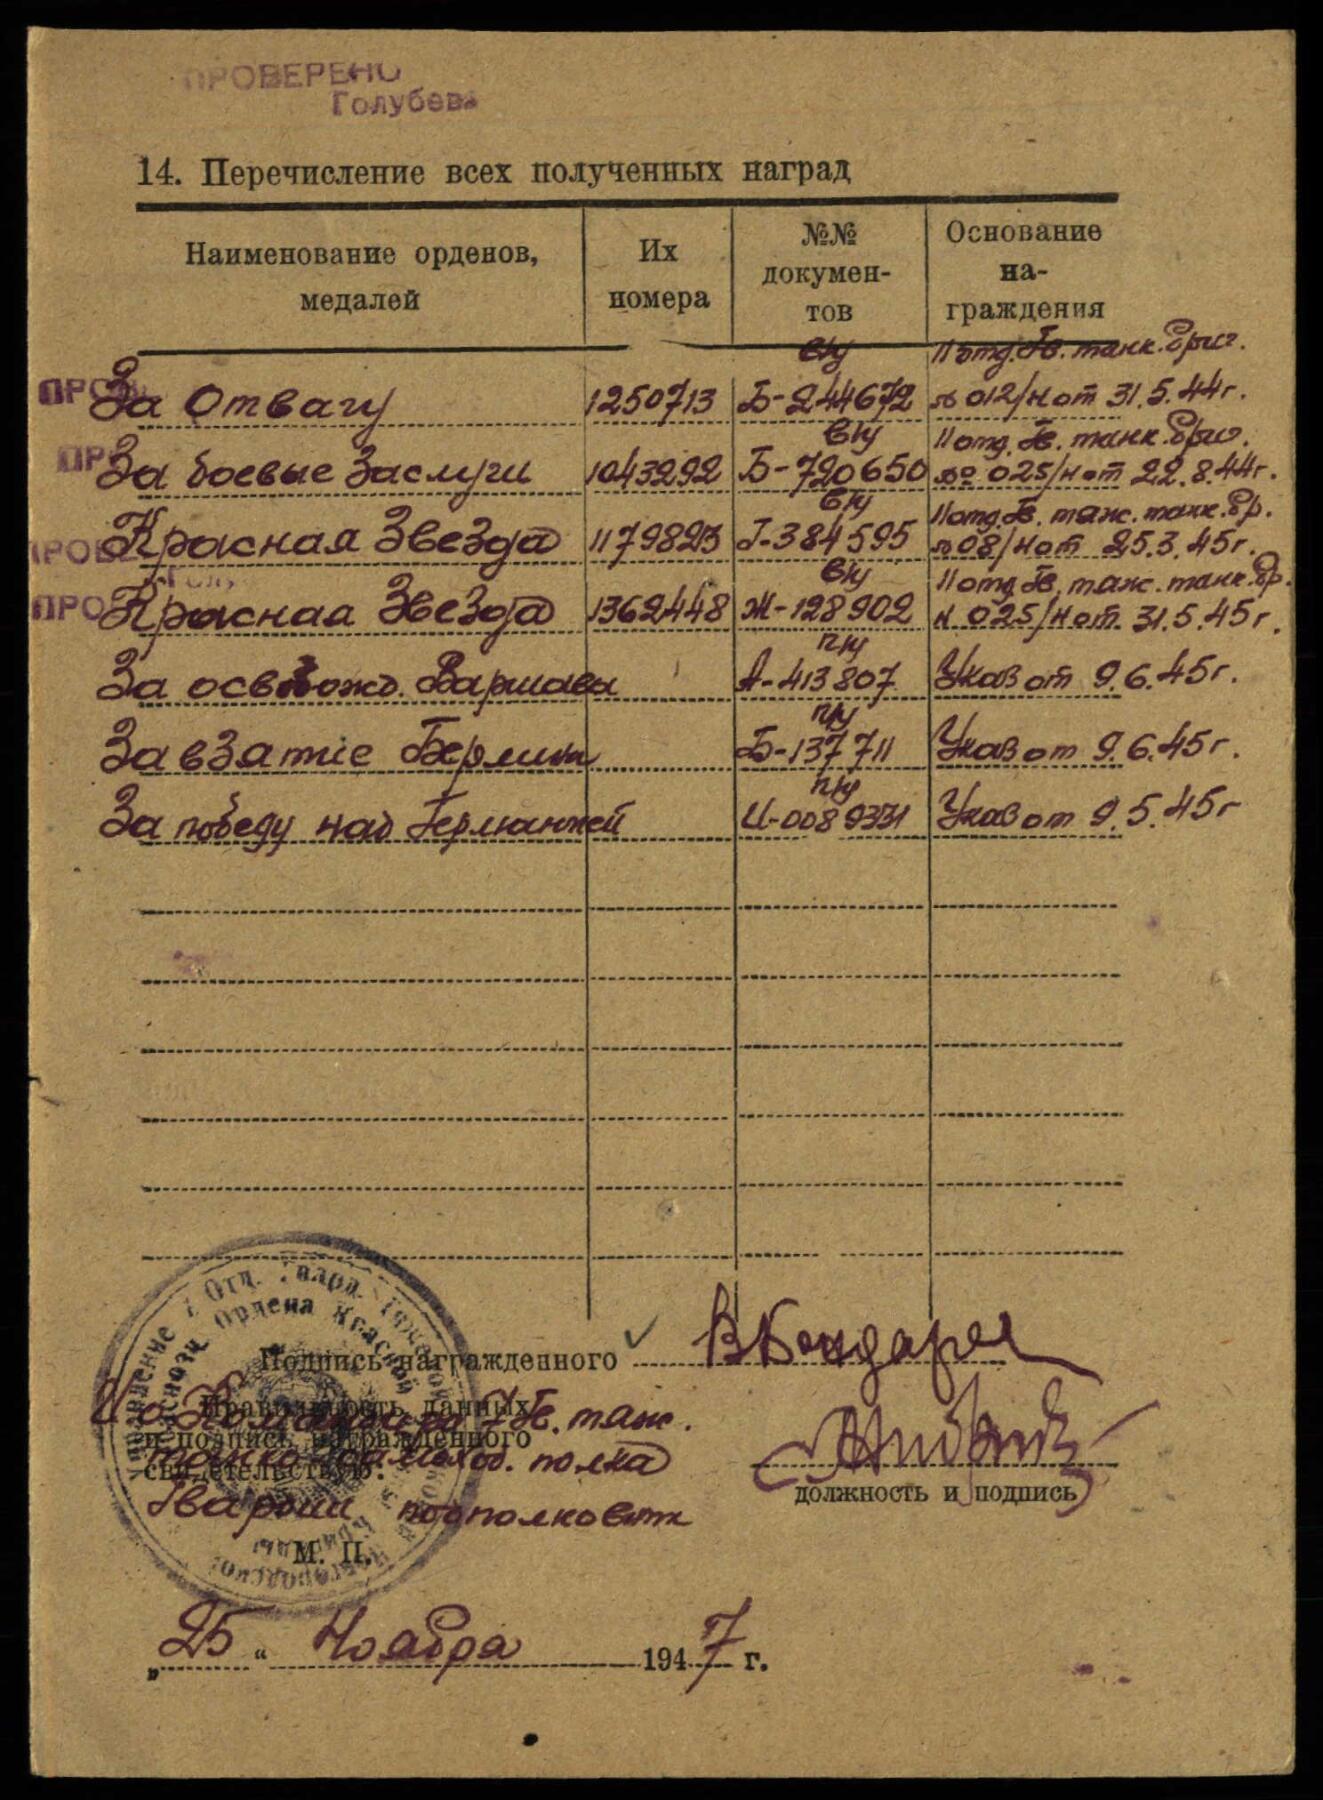 ПРОВЕРЕНО
Голубева
14. Перечисление всех полученных наград
Наименование орденов, медалей
Их номера
№№ докумен-тов
Основание на-граждения
в/у 11 отд. Гв. танк. бриг.
За Отвагу 1250713 Б-244672 № 012/н от 31.5.44г.
в/у 11 отд. Гв. танк. бриг.
За боевые заслуги 1043292 Б-720650 № 025/н от 22.8.44г.
в/у 11 отд. Гв. тяж. танк. бр.
Красная Звезда 1179823 Г-384595 № 08/н от 25.3.45г.
в/у 11 отд. Гв. тяж. танк. бр.
Красная Звезда 1362448 Ж-128902 № 025/н от 31.5.45г.
п/у
За освобожд. Варшавы А-413807 Указ от 9.6.45г.
п/у
За взятие Берлина Б-137711 Указ от 9.6.45г.
п/у
За победу над Германией И-0089331 Указ от 9.5.45г
Подпись награжденного В Бондарев
Правильность данных
и подпись награжденного
свидетельствую:
И о Командира 7 Гв. тяж.
танко-самоход. полка
Гвардии подполковник
должность и подпись
М. П.
„25“ Ноября 1947 г.